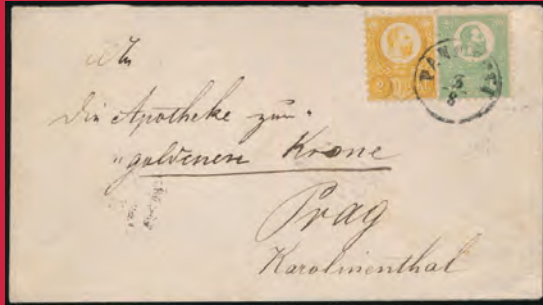 An
Die Apotheke zur
"goldenen Krone
Prag
Karolinenthal